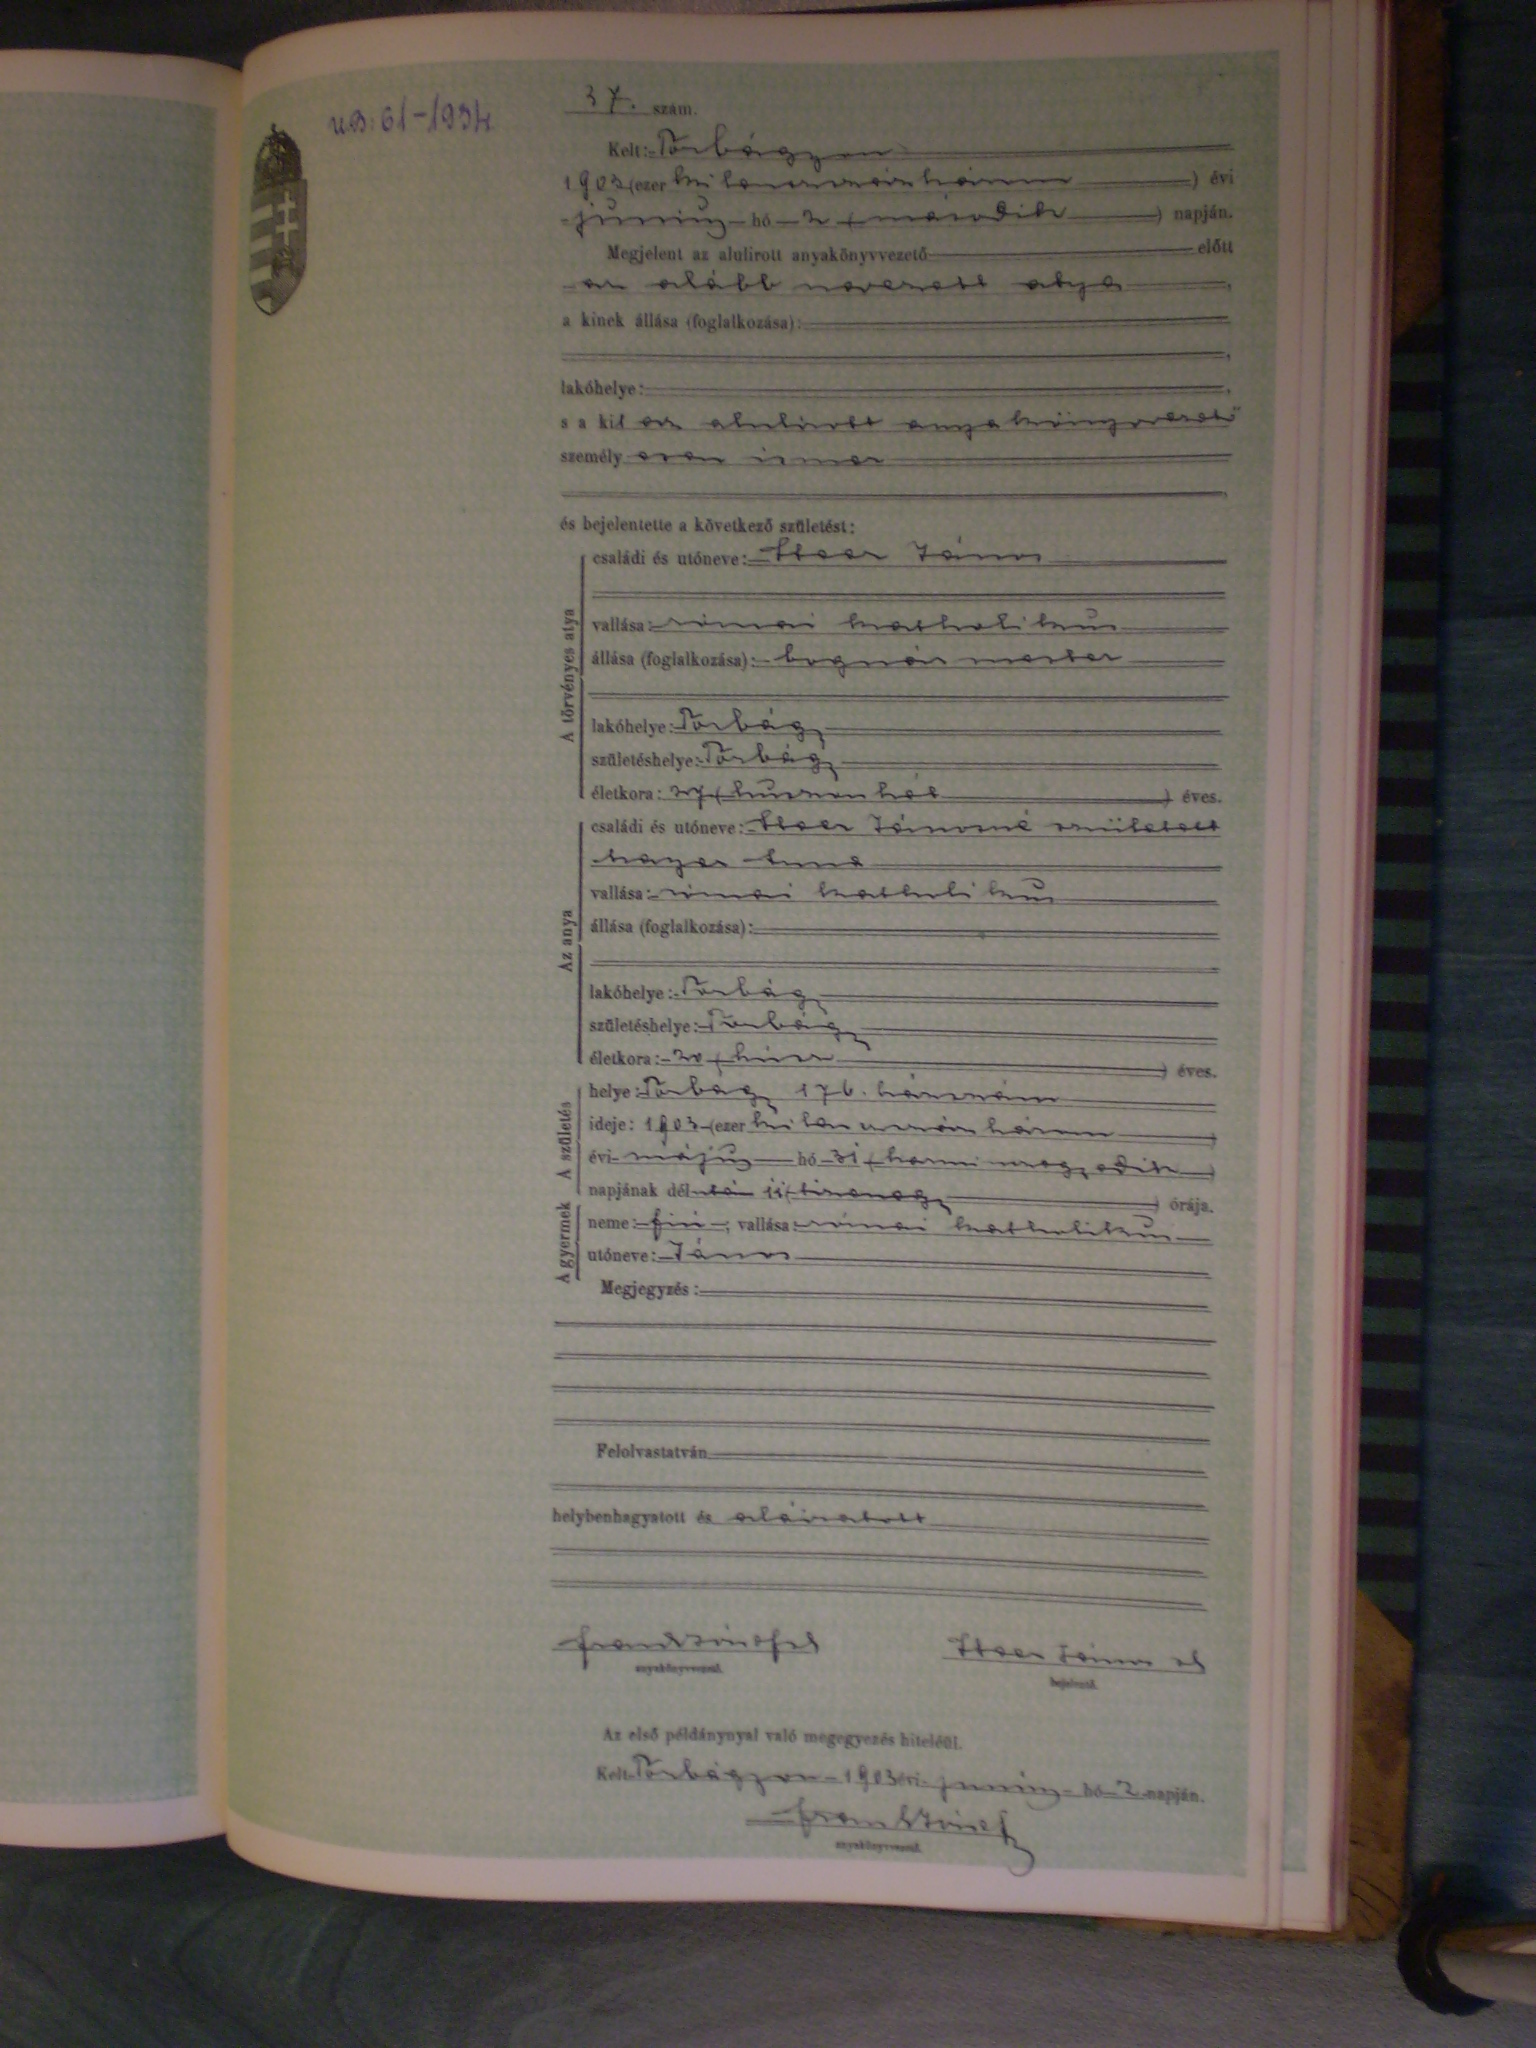 u.B: 61-1934
37. szám.
Kelt: Törbágyon
1903 (ezer kilencszázhárom) évi
junius hó 2 (második) napján.
Megjelent az alulirott anyakönyvvezető előtt
az alább nevezett atya,
a kinek állása (foglalkozása):
lakóhelye:
s a kit az alulirott anyakönyvvezető
személyesen ismer
és bejelentette a következő születést:
A törvényes atya
családi és utóneve: János
vallása: római katholikus
állása (foglalkozása): bognár mester
lakóhelye: Törbágy
születéshelye: Törbágy
életkora: 27 (huszonhét) éves.
Az anya
családi és utóneve: Jánosné született
vallása: római katholikus
állása (foglalkozása):
lakóhelye: Törbágy
születéshelye: Törbágy
életkora: 20 (húsz) éves.
A születés
helye: Törbágy 176. házszám
ideje: 1903 (ezer kilencszázhárom)
évi május hó 31 (harminczegyedik)
napjának délután 11 (tizenegy) órája.
A gyermek
neme: fiú, vallása: római katholikus
utóneve: János
Megjegyzés:
Felolvastatván
helybenhagyatott és aláiratott
anyakönyvvezető.
János
bejelentő.
Az első példánynyal való megegyezés hiteléül.
Kelt Törbágyon 1903 évi junius hó 2 napján.
anyakönyvvezető.